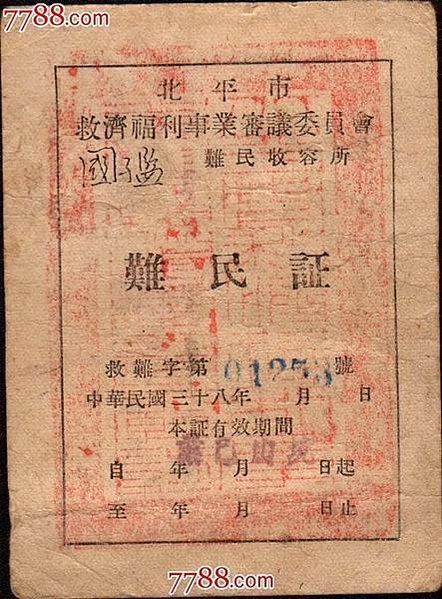 7788.com
北平市
救濟福利事業審議委員會
國 難民收容所
難民証
救難字第01253號
中華民國三十八年 月 日
本証有效期間
自 年 月 日起
至 年 月 日止
7788.com